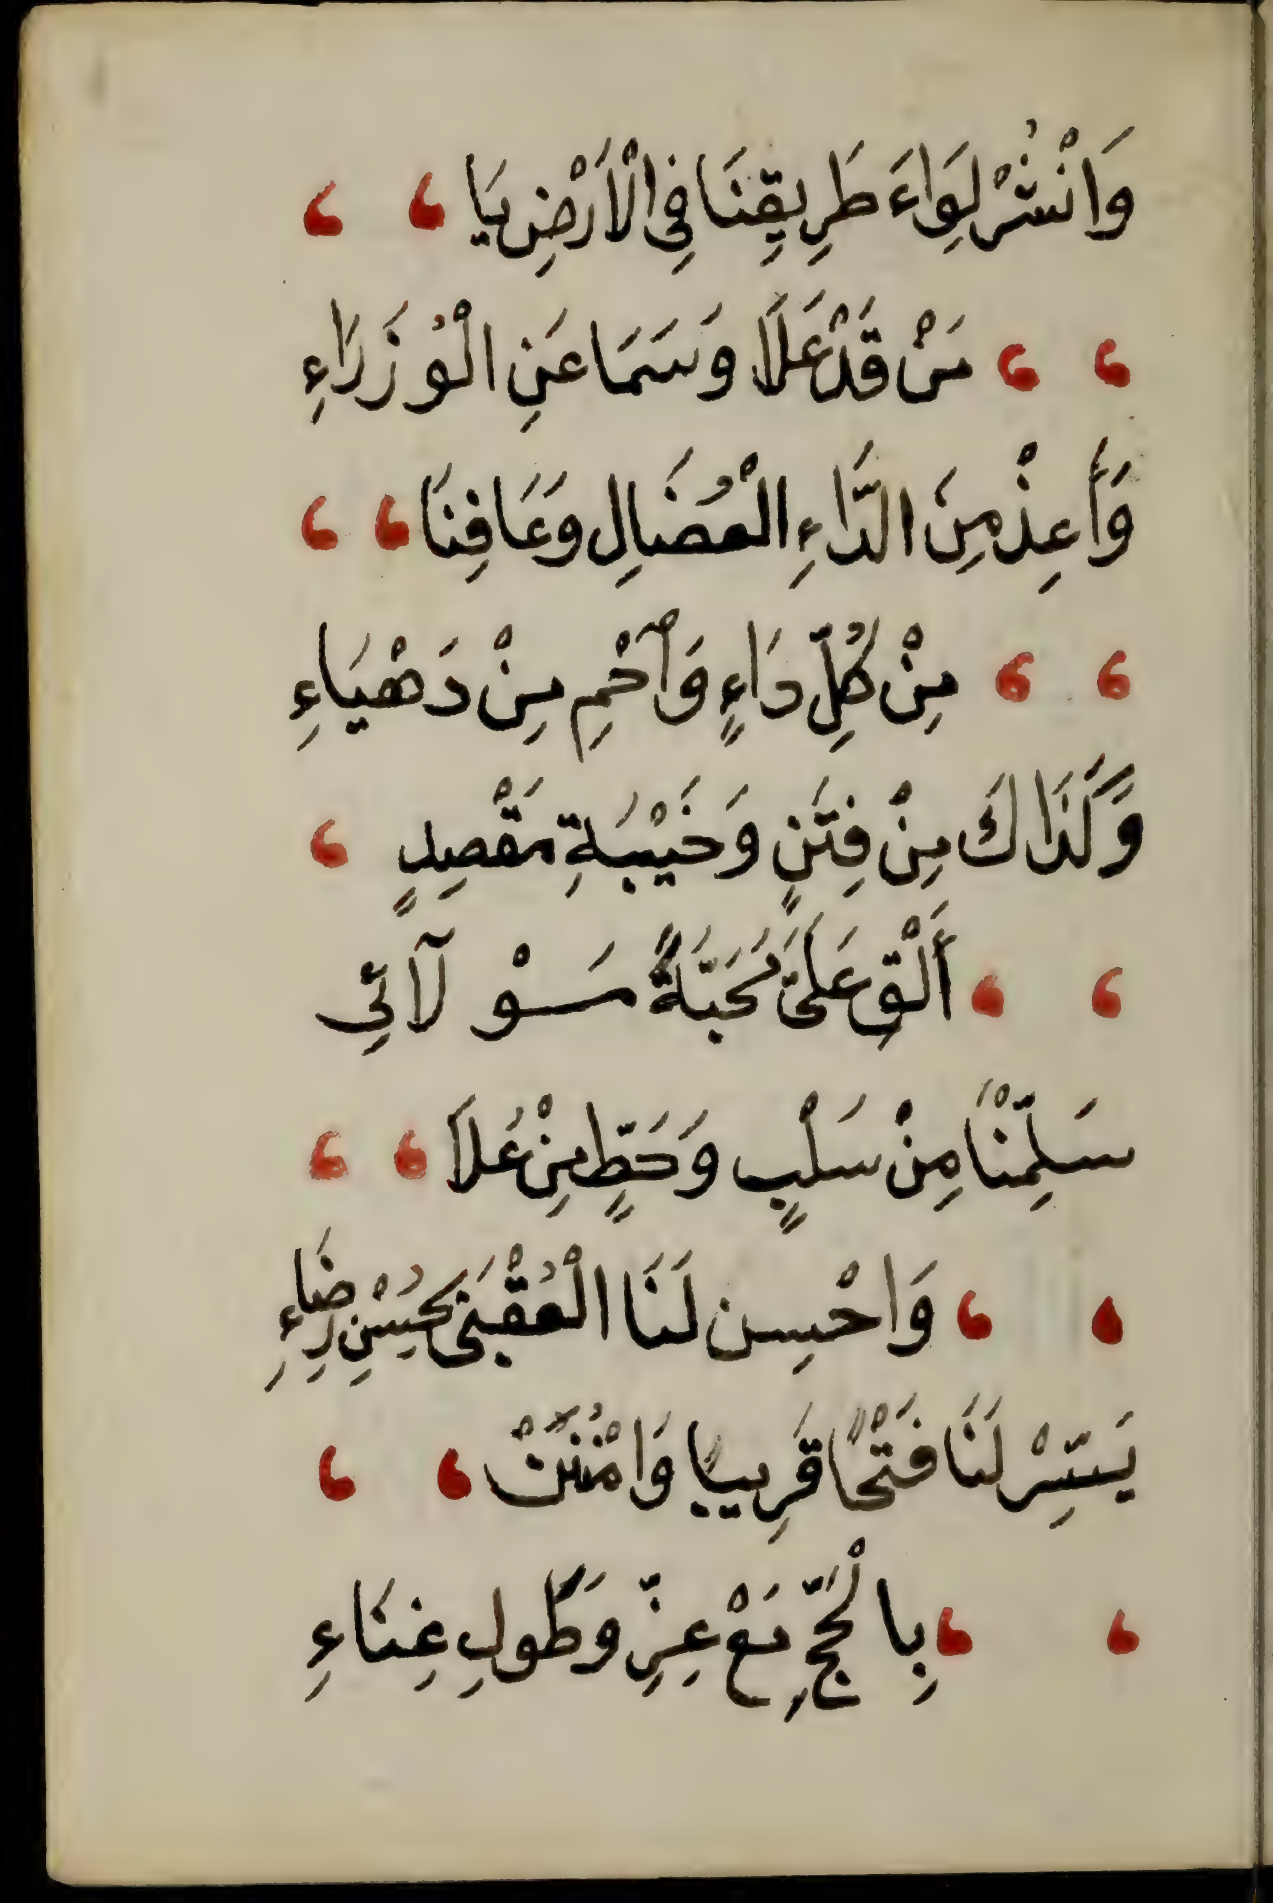 وَانْشُرْ لِوَاءَ طَرِيقِنَا فِي الْأَرْضِ يَا
مَنْ قَدْ عَلَا وَسَمَا عَنِ الْوُزَرَاءِ
وَأَعِذْ مِنَ الدَّاءِ الْعُضَالِ وَعَافِنَا
مِنْ كُلِّ دَاءٍ وَٱحْمِ مِنْ دَهْيَاءِ
وَكَذَاكَ مِنْ فِتَنٍ وَخَيْبَةِ مَقْصِدٍ
أَلْقِ عَلَيَّ مَحَبَّةً مَوْلَآئِي
سَلِّمْنَا مِنْ سَلْبٍ وَحَطٍّ مِنْ عُلَا
وَاحْسِن لَنَا الْعُقْبَى بِحُسْنِ رِضَاءِ
يَسِّرْ لَنَا فَتْحًا قَرِيبًا وَامْنُنَنْ
بِالْحَجِّ مَعْ عِزٍّ وَطُولِ غِنَاءِ